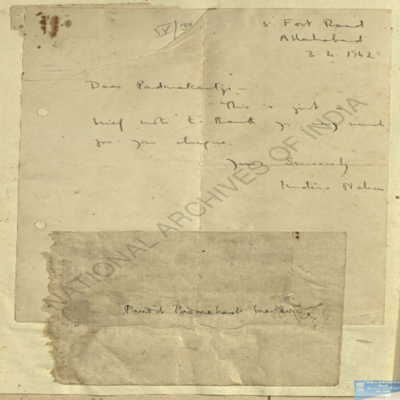 IV/30
5. Fort Road
Allahabad
3.4.1942
Dear Padmakantji –
This is just
brief note to thank you very much
for your cheque.
Yours Sincerely
Indira Nehru
Pandit Padmakant Malaviya
NATIONAL ARCHIVES OF INDIA